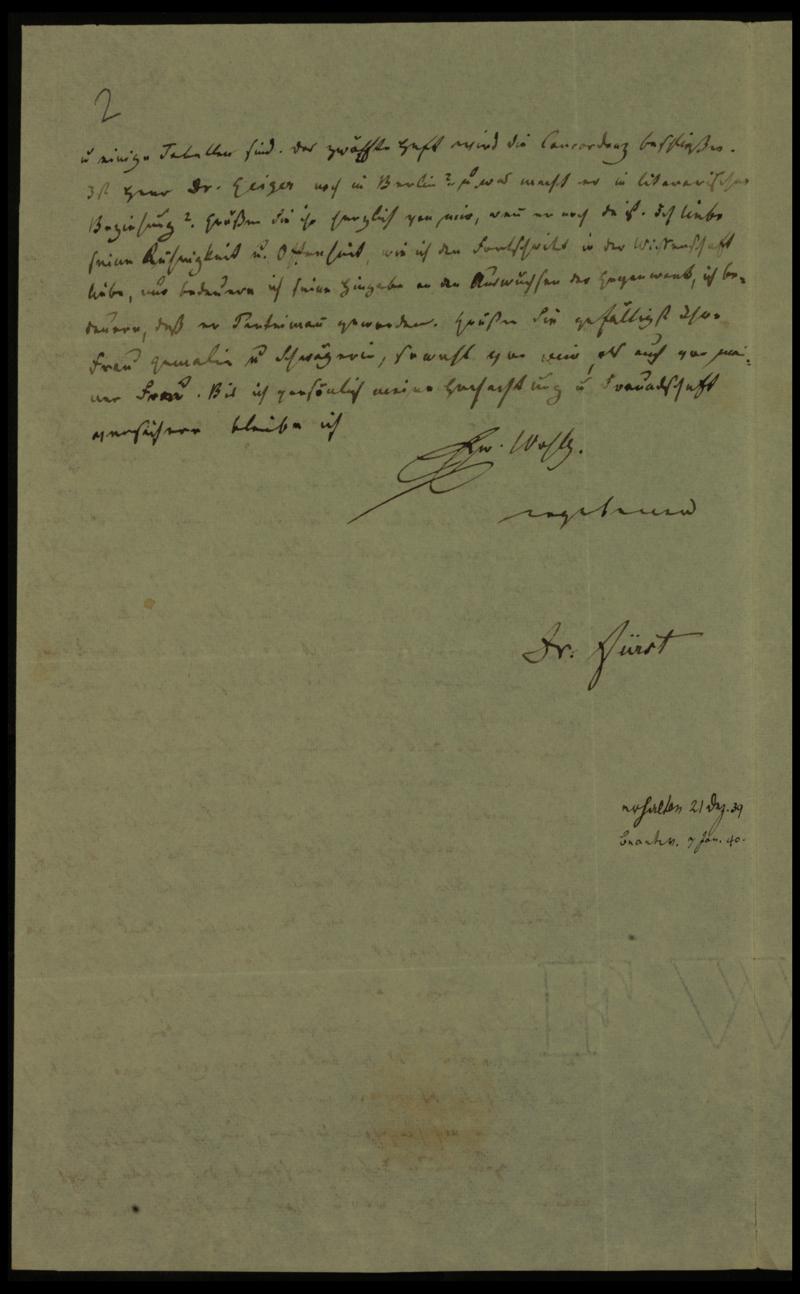 2
u einige Tabellen sind. Das zwölfte Heft wird die Concordanz beschließen.
Ist Herr Dr. Geiger noch in Berlin? u was macht er in literarischer
Beziehung? Grüßen Sie ihn herzlich von mir, wenn er noch da ist. Ich liebe
seine Ruhmigkeit u. Offenheit, wie ich den Fortschritt in der Wissenschaft
liebe, nur bedauere ich seine Hingabe an den Auswüchsen der Gegenwart, ich be-
dauere, daß er Parteimann geworden. Grüßen Sie gefälligst Ihre
Frau Gemalin u Schwägerin, sowohl von mir, als auch von mei-
ner Frau. Bis ich persönlich meine Hochachtung u Freundschaft
versichere bleibe ich
Ew. Wohlg.
ergebener
Dr. Fürst
erhalten 21 Dez. 39
beantw. 7 Jan. 40.